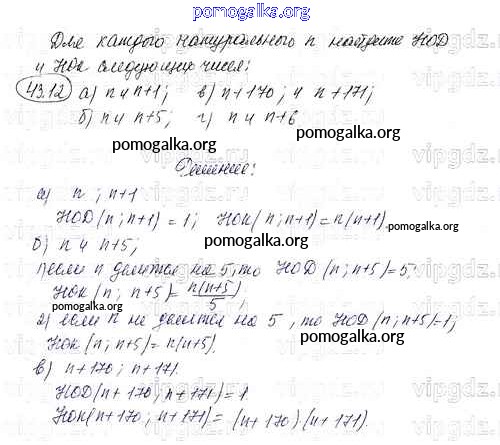 pomogalka.org
Для каждого натурального n найдите НОД
и НОК следующих чисел:
43.12 а) n и n+1; в) n+170; и n+171;
б) n и n+5; г) n и n+6
pomogalka.org
pomogalka.org
Решение:
а) n; n+1
НОД(n; n+1) = 1; НОК(n; n+1) = n(n+1).
pomogalka.org
б) n и n+5;
1) если n делится на 5, то НОД(n; n+5) = 5;
НОК(n; n+5) = n(n+5)/5;
pomogalka.org
2) если n не делится на 5, то НОД(n; n+5) = 1;
НОК(n; n+5) = n(n+5).
pomogalka.org
в) n+170; n+171.
НОД(n+170; n+171) = 1.
pomogalka.org
НОК(n+170; n+171) = (n+170)(n+171).